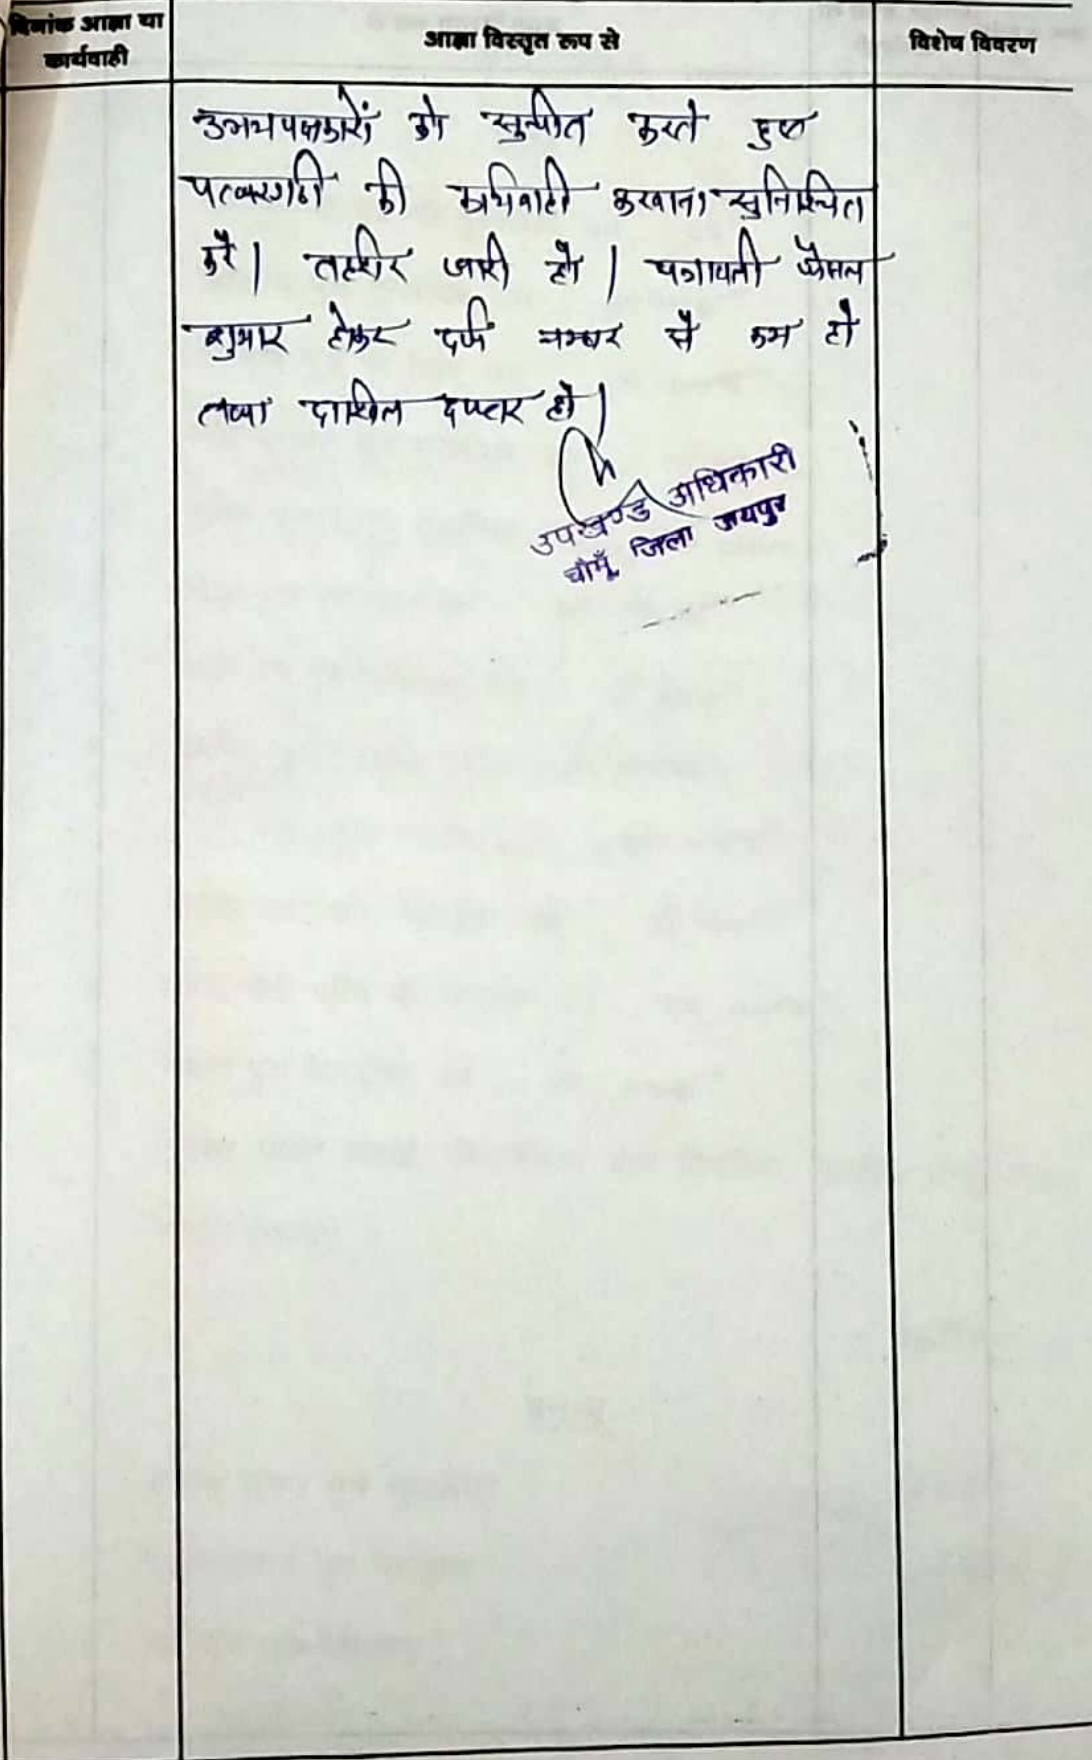 दिनांक आज्ञा या
कार्यवाही
आज्ञा विस्तृत रूप से
विशेष विवरण
उभयपक्षकारों को सुचीत करते हुए
पत्थरगढी की कार्यवाही करवाना सुनिश्चित
करें। तहरीर जारी हो। पत्रावली फैसल
शुमार होकर दर्ज नम्बर से कम हो
तथा दाखिल दफ्तर हो।
उपखण्ड अधिकारी
चौमूँ, जिला जयपुर